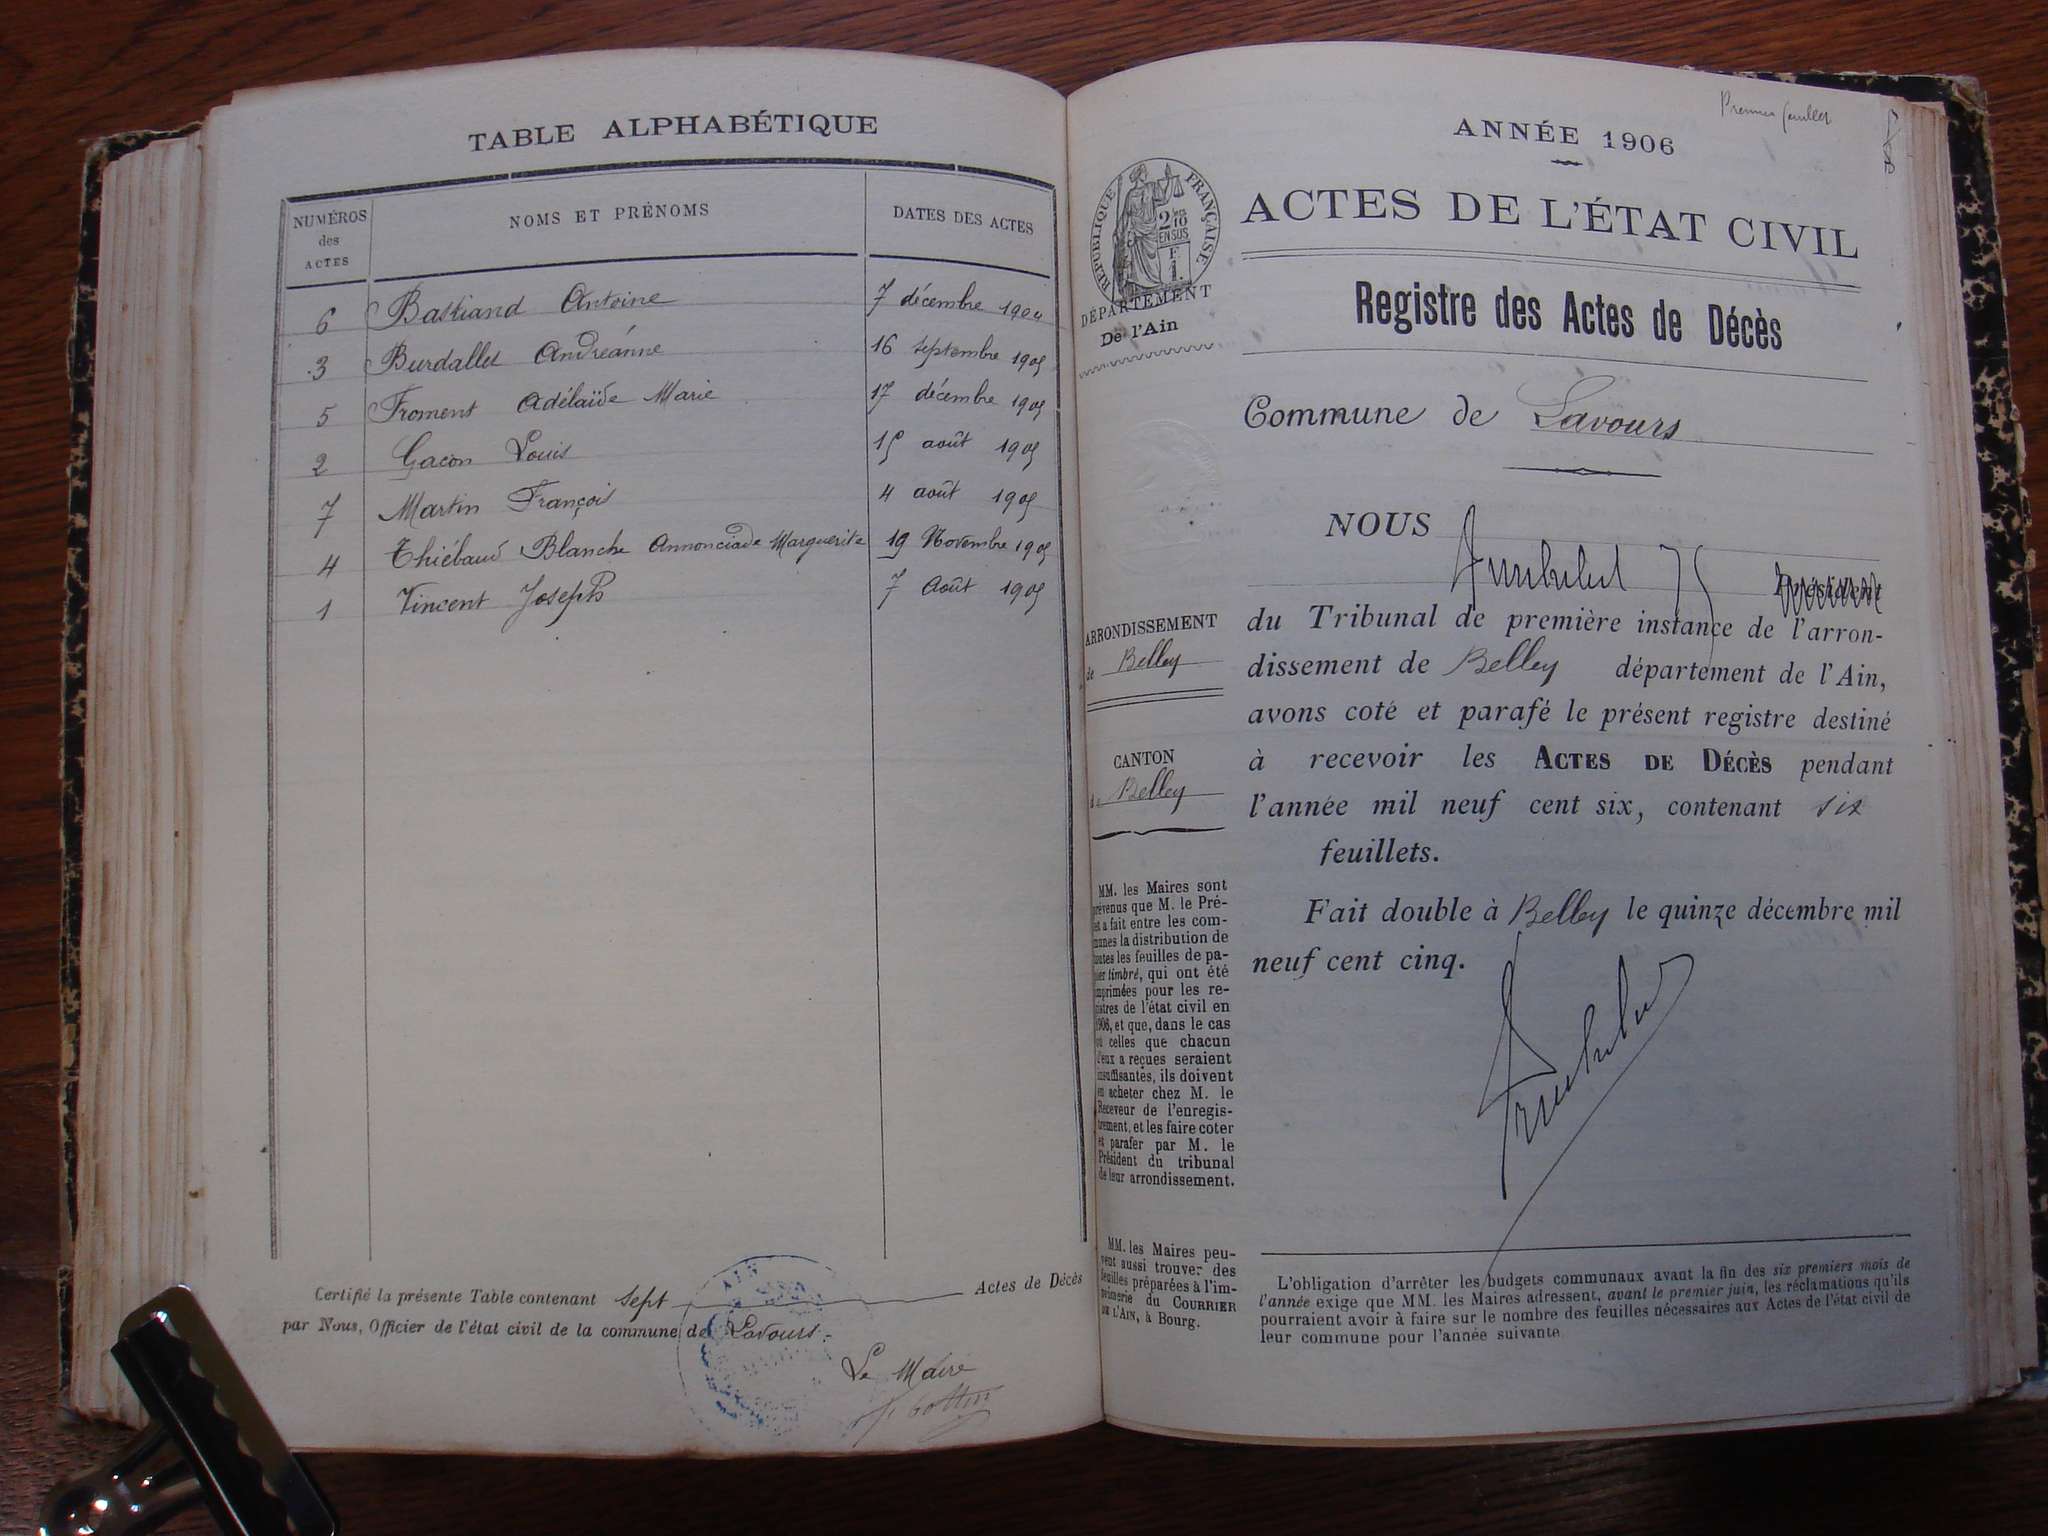 TABLE ALPHABÉTIQUE
NUMÉROS des ACTES NOMS ET PRÉNOMS DATES DES ACTES
6 Bastiand Antoine 7 décembre
3 Burdallet Andréanne 16 septembre 1905
5 Froment Adélaïde Marie 17 décembre 1905
2 Gacon Louis 15 août 1905
7 Martin François 4 août 1905
4 Thiébaud Blanche Annonciade Marguerite 19 Novembre 1905
1 Vincent Joseph 7 Août 1905
Certifié la présente Table contenant sept Actes de Décès
par Nous, Officier de l'état civil de la commune de Lavours.-
Le Maire
Premier feuillet
ANNÉE 1906
RÉPUBLIQUE FRANÇAISE
2/10
EN SUS
F
1.
DÉPARTEMENT
De l'Ain
ACTES DE L'ÉTAT CIVIL
Registre des Actes de Décès
Commune de Lavours
NOUS
Président
du Tribunal de première instance de l'arron-
dissement de Belley département de l'Ain,
avons coté et parafé le présent registre destiné
à recevoir les ACTES DE DÉCÈS pendant
l'année mil neuf cent six, contenant six
feuillets.
Fait double à Belley le quinze décembre mil
neuf cent cinq.
ARRONDISSEMENT
de Belley
CANTON
de Belley
MM. les Maires sont
prévenus que M. le Pré-
fet a fait entre les com-
munes la distribution de
toutes les feuilles de pa-
pier timbré, qui ont été
imprimées pour les re-
gistres de l'état civil en
1906, et que, dans le cas
où celles que chacun
d'eux a reçues seraient
insuffisantes, ils doivent
en acheter chez M. le
Receveur de l'enregis-
trement, et les faire coter
et parafer par M. le
Président du tribunal
de leur arrondissement.
MM. les Maires peu-
vent aussi trouver des
feuilles préparées à l'im-
primerie du COURRIER
DE L'AIN, à Bourg.
L'obligation d'arrêter les budgets communaux avant la fin des six premiers mois de
l'année exige que MM. les Maires adressent, avant le premier juin, les réclamations qu'ils
pourraient avoir à faire sur le nombre des feuilles nécessaires aux Actes de l'état civil de
leur commune pour l'année suivante.